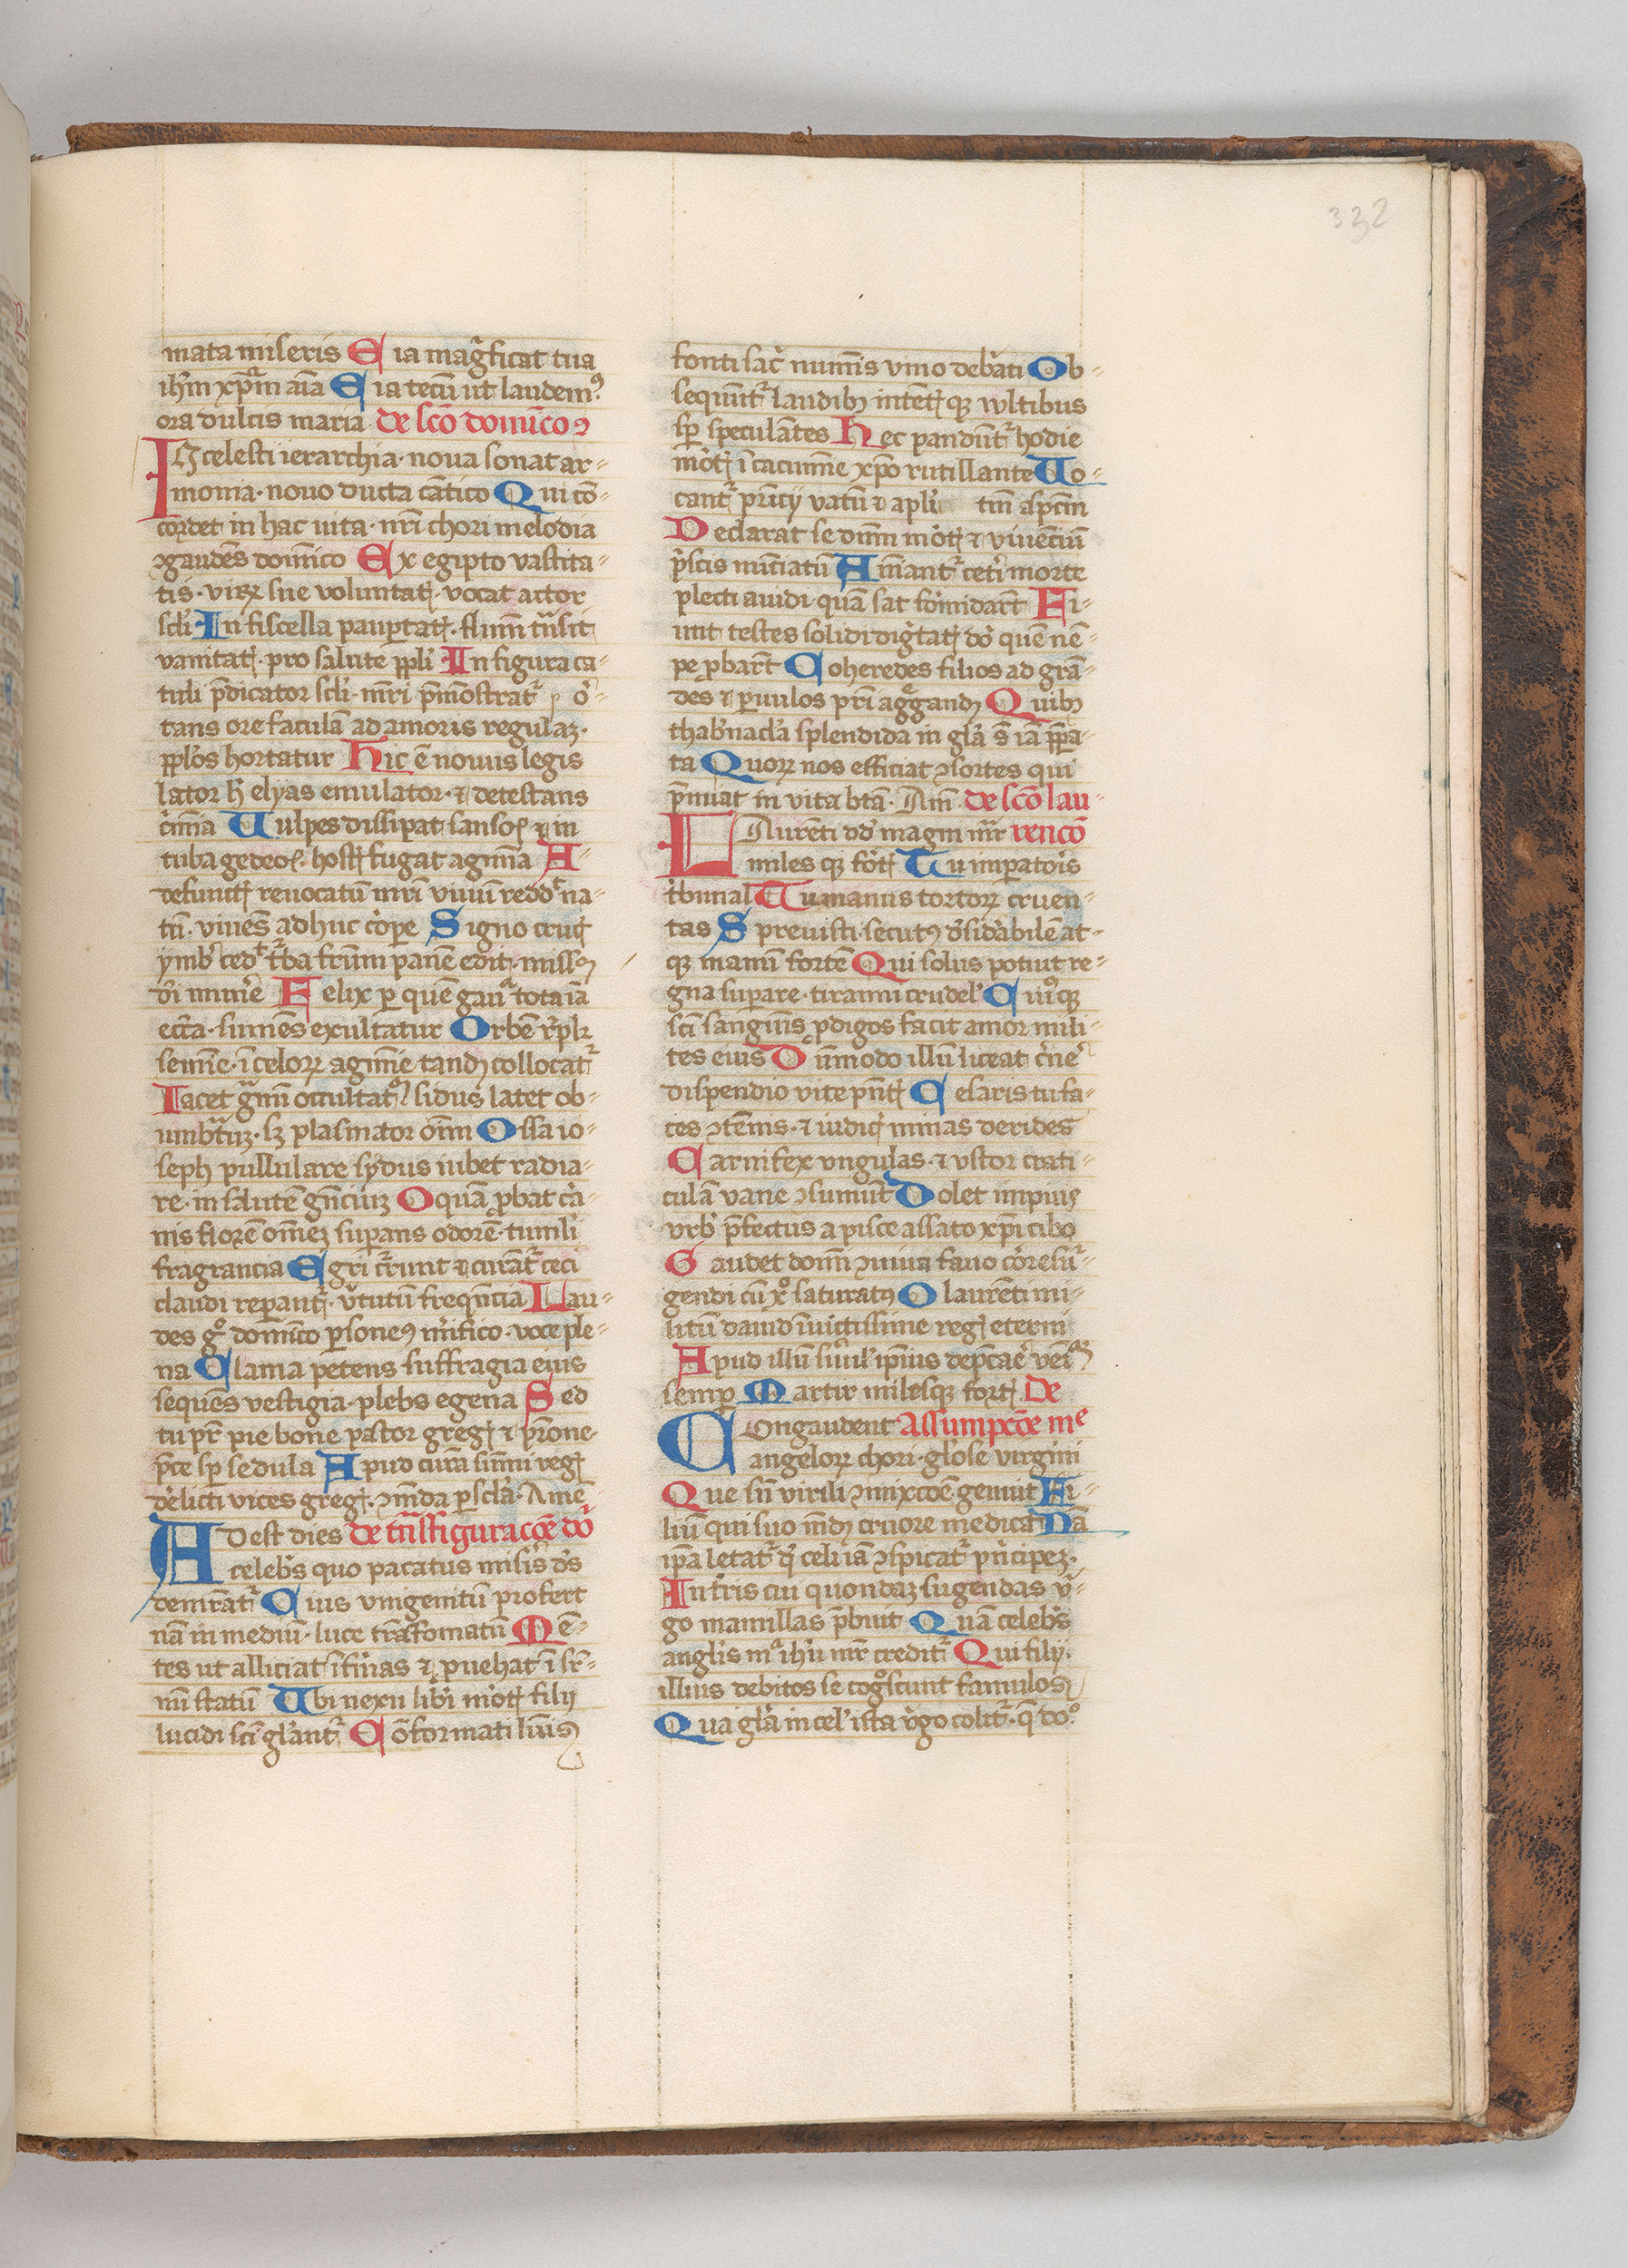 332
mata miseris Eia mag̃ficat tua
ih̃m xp̃m aĩa Eia tecũ ut laudem⁹
ora dulcis maria de sc̃o dom̃ico
IN celesti ierarchia · noua sonat ar-
monia · nouo ducta cãtico Qui cõ-
cordet in hac uita · nr̃i chori melodia
ꝯgaudẽs dom̃ico Ex egipto vastita-
tis · virꝝ sue voluntatꝭ · vocat actor
scl̃i In fiscella pauꝑtatꝭ · flum̃ tr̃nsit
vanitatꝭ · pro salute ppl̃i In figura ca-
tuli p̃dicator scl̃i · mr̃i p̃mõstratᷣ
tans ore faculã ad amoris regulaꝫ ·
ppl̃os hortatur Hic ẽ nouus legis
lator h̃ elyas emulator · ⁊ detestans
cĩmĩa Uulpes dissipat sansoꝭ ⁊ in
tuba gedeoꝭ · hostꝭ fugat agmĩa A-
defunctꝭ reuocatũ mr̃i viuũ redd᷑ na-
tũ · viuẽs adhuc cor̃pe Signo crucꝭ
ymb᷑ ced᷑ tr̃ba fr̃um panẽ edit · missũ
dĩ mun᷑e Felix ꝑ quẽ gauᷣ tota iã
ecc̃a · sumẽs exultatur Orbẽ r̃plꝫ
semĩe · ĩ celoꝝ agmĩe tandẽ collocatᷣ
Iacet gᷓnũ occultatũ sidus latet ob-
umbr̃tuꝫ · sꝫ plasmator om̃i Ossa io-
seph pullulare sydus iubet radia-
re · in salutẽ gñciuꝫ O quã ꝓbat ca᷑-
nis florẽ om̃eꝫ suꝑans odorẽ · tumli᷑
fragrancia Egri c᷑runt ⁊ curãtᷣ ceci
claudi reꝑantᷣ · v᷑tutũ freqũcia Lau-
des g° dom̃ico ꝑsonem⁹ mr̃ifico · voce ple-
na Clama petens suffragia eius
sequẽs vestigia · plebs egena Sed
tu pr̃ pie bone pastor gregꝭ ⁊ pr̃one
p̃ce sꝑ sedula Apud curã sum̃i regꝭ
de᷑licti vices gregꝭ · ꝯmẽda ꝑ scl̃a · Amẽ
ADest dies de tr̃nsfiguracõe dñi
celebr᷑s quo pacatus miser᷑is d᷑s
demr̃atᷣ Cuius vnigenitũ profert
nã in mediũ · luce trãsfomatũ Mẽ-
tes ut alliciat ĩfĩmas ⁊ ꝓuehat ĩ sr̃-
mũ statũ Ubi nexu lib᷑i mortꝭ filij
lucidi scĩ gl᷑antᷣ Cõformati lumĩs
fonti sac᷑ num̃is vino deb᷑ati Ob-
sequũtᷣ laudibꝫ intẽtꝭ qꝫ wltibus
sꝑ speculãtes Hec pandũtᷣ hodie
mõtꝭ ĩ cacum̃e xp̃o rutillante Uo-
cantᷣ pr̃ncij vatũ ⁊ apl᷑i tm̃ sp̃cim̃
Declarat se dnm̃ mortꝭ ⁊ viuẽciũ
pr᷑scis nũciatũ Am̃antᷣ ceter᷑i morte
plecti auidi · quã sat for᷑midarẽt Fi-
unt testes solidi dig̃tatꝭ dor᷑ quẽ nẽ-
pe ꝓbarẽt Coheredes filios ad grã-
des ⁊ ꝑuulos pr̃i ag᷑gandꝫ Quibꝫ
thab᷑nacl᷑a splendida in gl᷑a s̃ iã pp̃a-
ta Quoꝝ nos efficiat ꝯsortes qui
p̃muat in vita bt̃a · Am̃ · de sc̃o lau-
LAurẽti dd᷑ magni mr̃ rencõ
miles qꝫ for᷑tꝭ Tu imꝑator᷑is
tr᷑bunal Tu manus tortoꝝ cruen-
tas Spreuisti secut⁹ d᷑sid᷑abilẽ at-
qꝫ manũ fortẽ Qui solus potuit re-
gna suꝑare · tiranni crudel᷑ Cui᷑qꝫ
scĩ sang̃is ꝓdigos facit amor mili-
tes eius Dũmodo illũ liceat c᷑ne᷑
dispendio vite pñtꝭ Cesaris tu fa-
ces ꝯtẽnis · ⁊ iudicꝭ minas derides
Carnifex vngulas · ⁊ vstor crati-
culã vane ꝯsumũt Dolet impius
vrb᷑ p̃fectus a pisce assato xp̃i cibo
Gaudet dom̃i ꝯuiua fauo cor᷑esur᷑-
gendi cũ x° saturat⁹ O laurẽti mi-
litũ dauid ĩuictissime regꝭ eterni
Apud illũ suũl᷑ ip̃ius dep̃cae᷑ veĩã
semꝑ Martir milesqꝫ fortꝭ De
COngaudent Assumpcõe me
angeloꝝ chori · gl᷑ose virgini
Que sñ virili ꝯmixcõe genuit Fi-
liũ qui suo mũdũ cruore medicat Nã
ip̃a letatᷣ qd᷑ celi iã ꝯspicatᷣ pr᷑ncipeꝫ ·
In tr᷑is cui quondaꝫ sugendas v᷑-
go mamillas p̃buit Quã celebr᷑s
angl᷑is mᷓ ih᷑u mr̃ creditᷣ Qui filij ·
illius debitos se cog°scunt famulos
Qua gl᷑a in cel᷑ ista v᷑go colitᷣ · q̃ do°